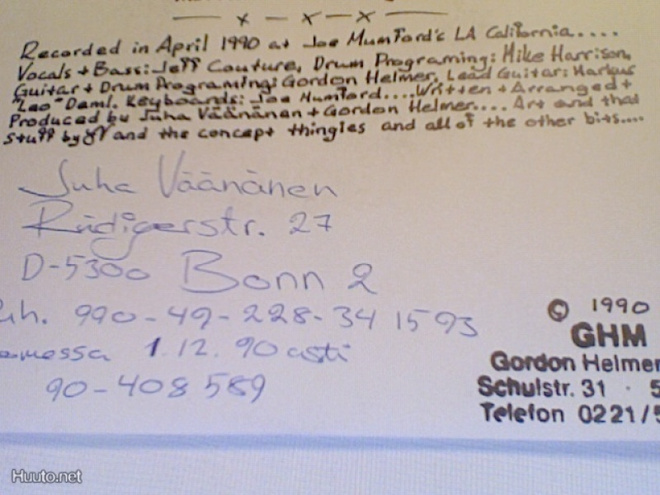 — x — x — x —
Recorded in April 1990 at Joe Mumford's LA California.....
Vocals + Bass: Jeff Couture, Drum Programing: Mike Harrison,
Guitar + Drum Programing: Gordon Helmer, Lead Guitar: Markus
"Leo" Deml. Keyboards: Joe Mumford....Written + Arranged +
Produced by Juha Väänänen + Gordon Helmer.... Art and that
stuff by and the concept thingies and all of the other bits....
Juha Väänänen
Rüdigerstr. 27
D-5300 Bonn 2
uh. 990-49-228-34 15 93
omessa 1.12.90 asti
90-408 589
© 1990
GHM
Gordon Helmer
Schulstr. 31 · 5
Telefon 0221/5
Huuto.net